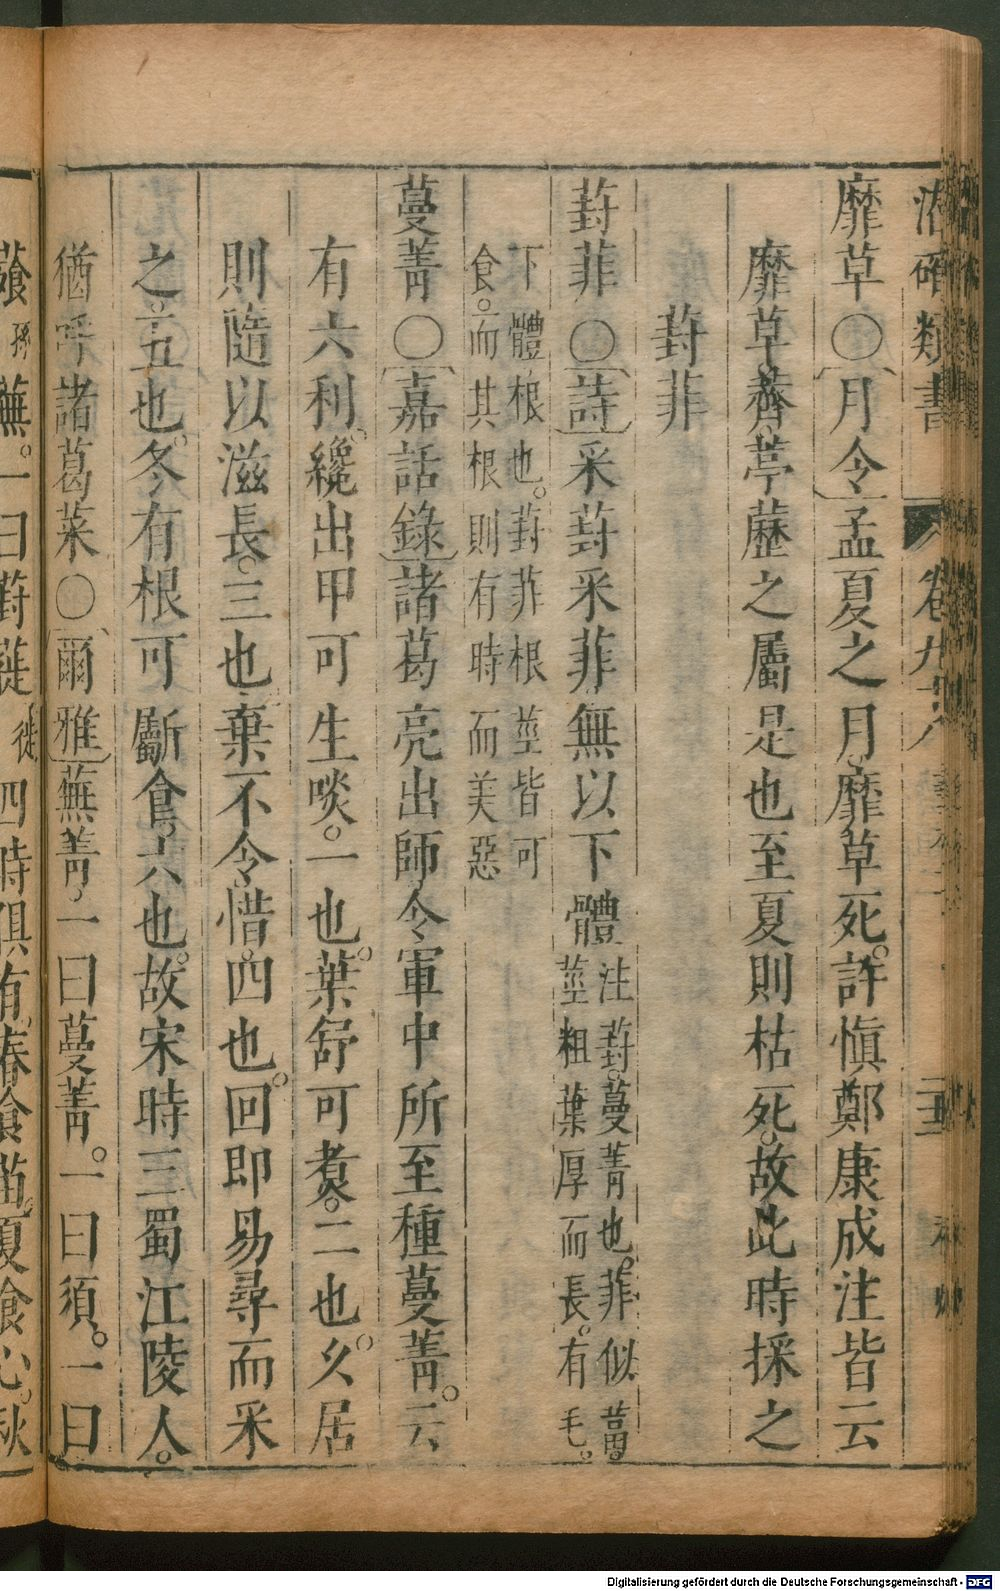 潛確類書 卷九十八 二十五
靡草〇月令孟夏之月靡草死許慎鄭康成注皆云
靡草薺葶藶之屬是也至夏則枯死故此時採之
葑菲
葑菲〇詩采葑采菲無以下體注葑蔓菁也菲似葍莖粗葉厚而長有毛
下體根也葑菲根莖皆可食而其根則有時而美惡
蔓菁〇嘉話錄諸葛亮出師令軍中所至種蔓菁云
有六利纔出甲可生啖一也葉舒可煮二也久居
則隨以滋長三也棄不令惜四也回即易尋而采
之五也冬有根可斸食六也故宋時三蜀江陵人
猶呼諸葛菜〇爾雅蕪菁一曰蔓菁一曰須一曰
蕪一曰葑蓯四時俱有春食苗夏食心秋
Digitalisierung gefördert durch die Deutsche Forschungsgemeinschaft - DFG